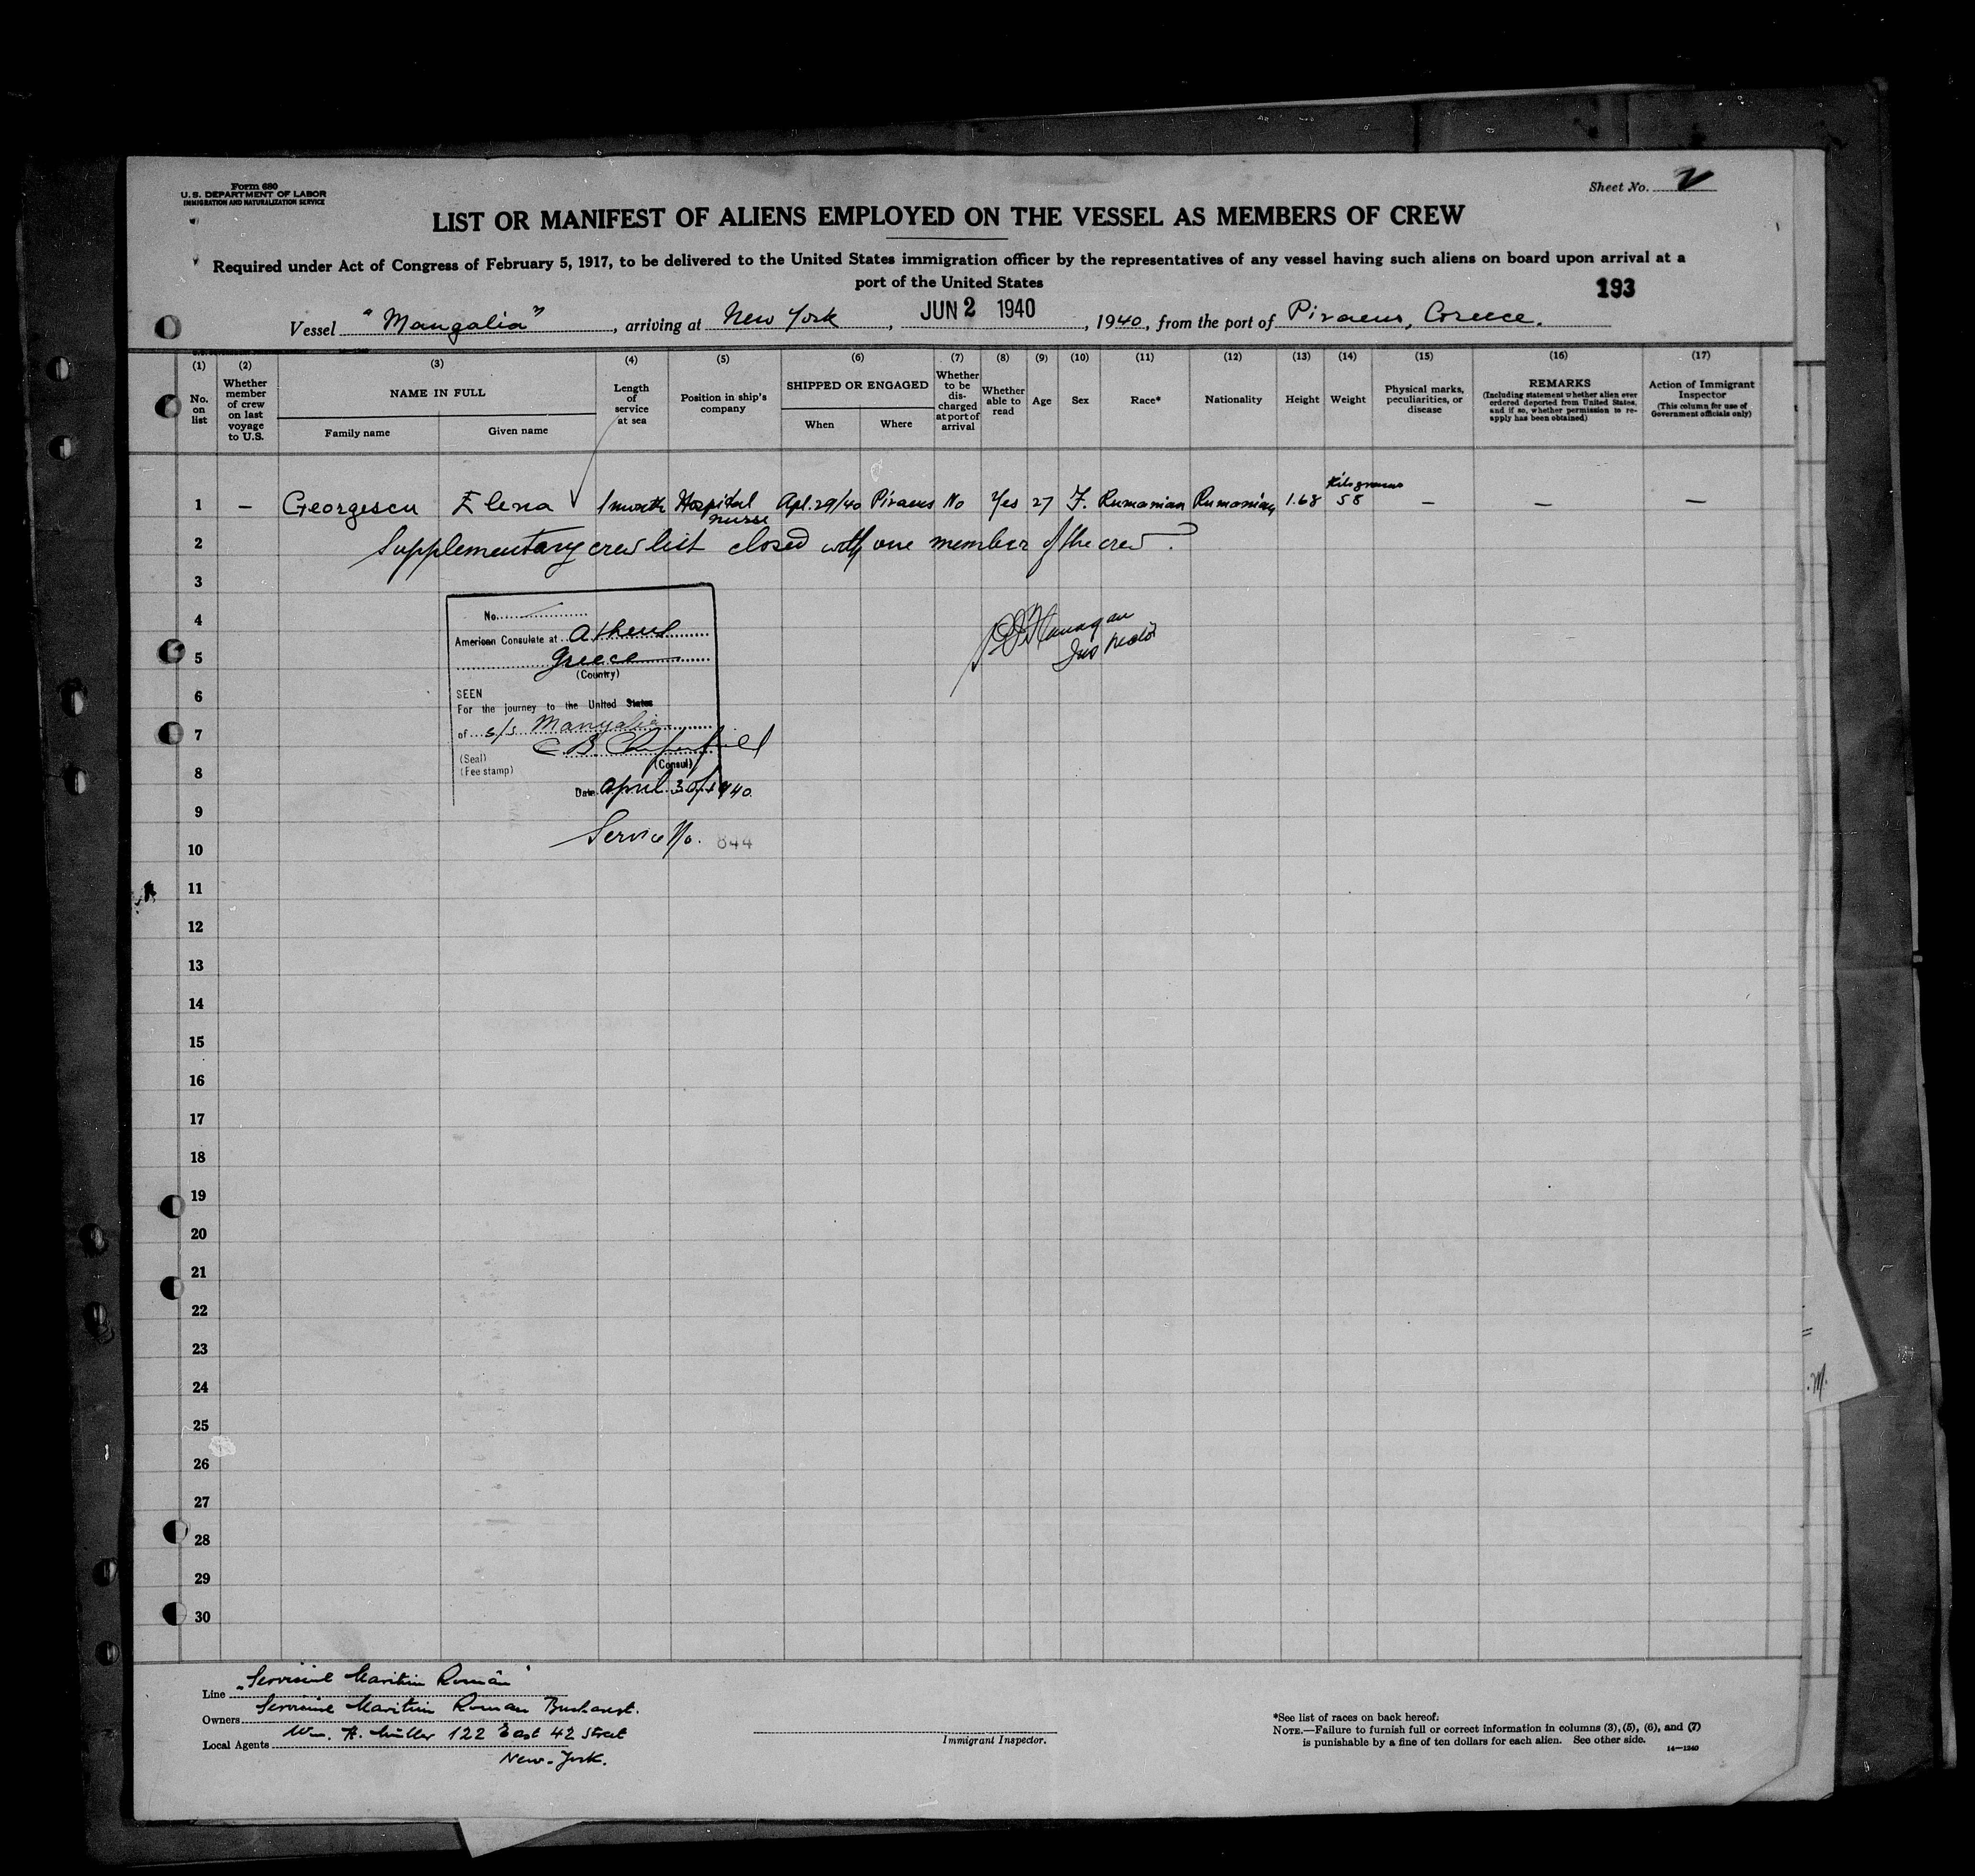 Form 680
U.S. DEPARTMENT OF LABOR
IMMIGRATION AND NATURALIZATION SERVICE
Sheet No. 2
LIST OR MANIFEST OF ALIENS EMPLOYED ON THE VESSEL AS MEMBERS OF CREW
Required under Act of Congress of February 5, 1917, to be delivered to the United States immigration officer by the representatives of any vessel having such aliens on board upon arrival at a
port of the United States
193
Vessel "Mangalia", arriving at New York, JUN 2 1940, 1940, from the port of Piraeus, Greece.
(1) (2) (3) (4) (5) (6) (7) (8) (9) (10) (11) (12) (13) (14) (15) (16) (17)
No. on list
Whether member of crew on last voyage to U.S.
NAME IN FULL
Family name
Given name
Length of service at sea
Position in ship's company
SHIPPED OR ENGAGED
When
Where
Whether to be discharged at port of arrival
Whether able to read
Age
Sex
Race*
Nationality
Height
Weight
Physical marks, peculiarities, or disease
REMARKS
(Including statement whether alien ever ordered deported from United States, and if so, whether permission to re-apply has been obtained)
Action of Immigrant Inspector
(This column for use of Government officials only)
1 – Georgescu Elena 1 month Hospital nurse Apl. 29/40 Piraeus No Yes 27 F. Rumanian Rumanian 1.68 Kilograms 58 – – –
2 Supplementary crew list closed with one member of the crew.
3
4
5
6
7
8
9
10
11
12
13
14
15
16
17
18
19
20
21
22
23
24
25
26
27
28
29
30
No.
American Consulate at Athens
Greece
(Country)
SEEN
For the journey to the United States
of s/s Mangalia
(Seal)
(Consul)
(Fee stamp)
Date April 30, 1940
Service No. 844
Flanagan
Inspector
Line "Serviciul Maritim Român"
Owners Serviciul Maritim Roman Bucharest.
Local Agents Wm. H. Müller 122 East 42 Street
New-York.
Immigrant Inspector.
*See list of races on back hereof.
NOTE.—Failure to furnish full or correct information in columns (3), (5), (6), and (7)
is punishable by a fine of ten dollars for each alien. See other side.
14—1240